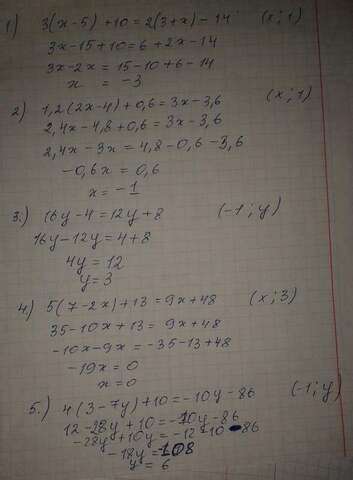 1) 3(x-5)+10=2(3+x)-14 (x;1)
3x-15+10=6+2x-14
3x-2x=15-10+6-14
x = -3
2) 1,2(2x-4)+0,6=3x-3,6 (x;1)
2,4x-4,8+0,6=3x-3,6
2,4x-3x=4,8-0,6-3,6
-0,6x=0,6
x=-1
3.) 16y-4=12y+8 (-1;y)
16y-12y=4+8
4y=12
y=3
4) 5(7-2x)+13=9x+48 (x;3)
35-10x+13=9x+48
-10x-9x=-35-13+48
-19x=0
x=0
5.) 4(3-7y)+10=-10y-86 (-1;y)
12-28y+10=-10y-86
-28y+10y=-12-10-86
-18y=-108
y=6